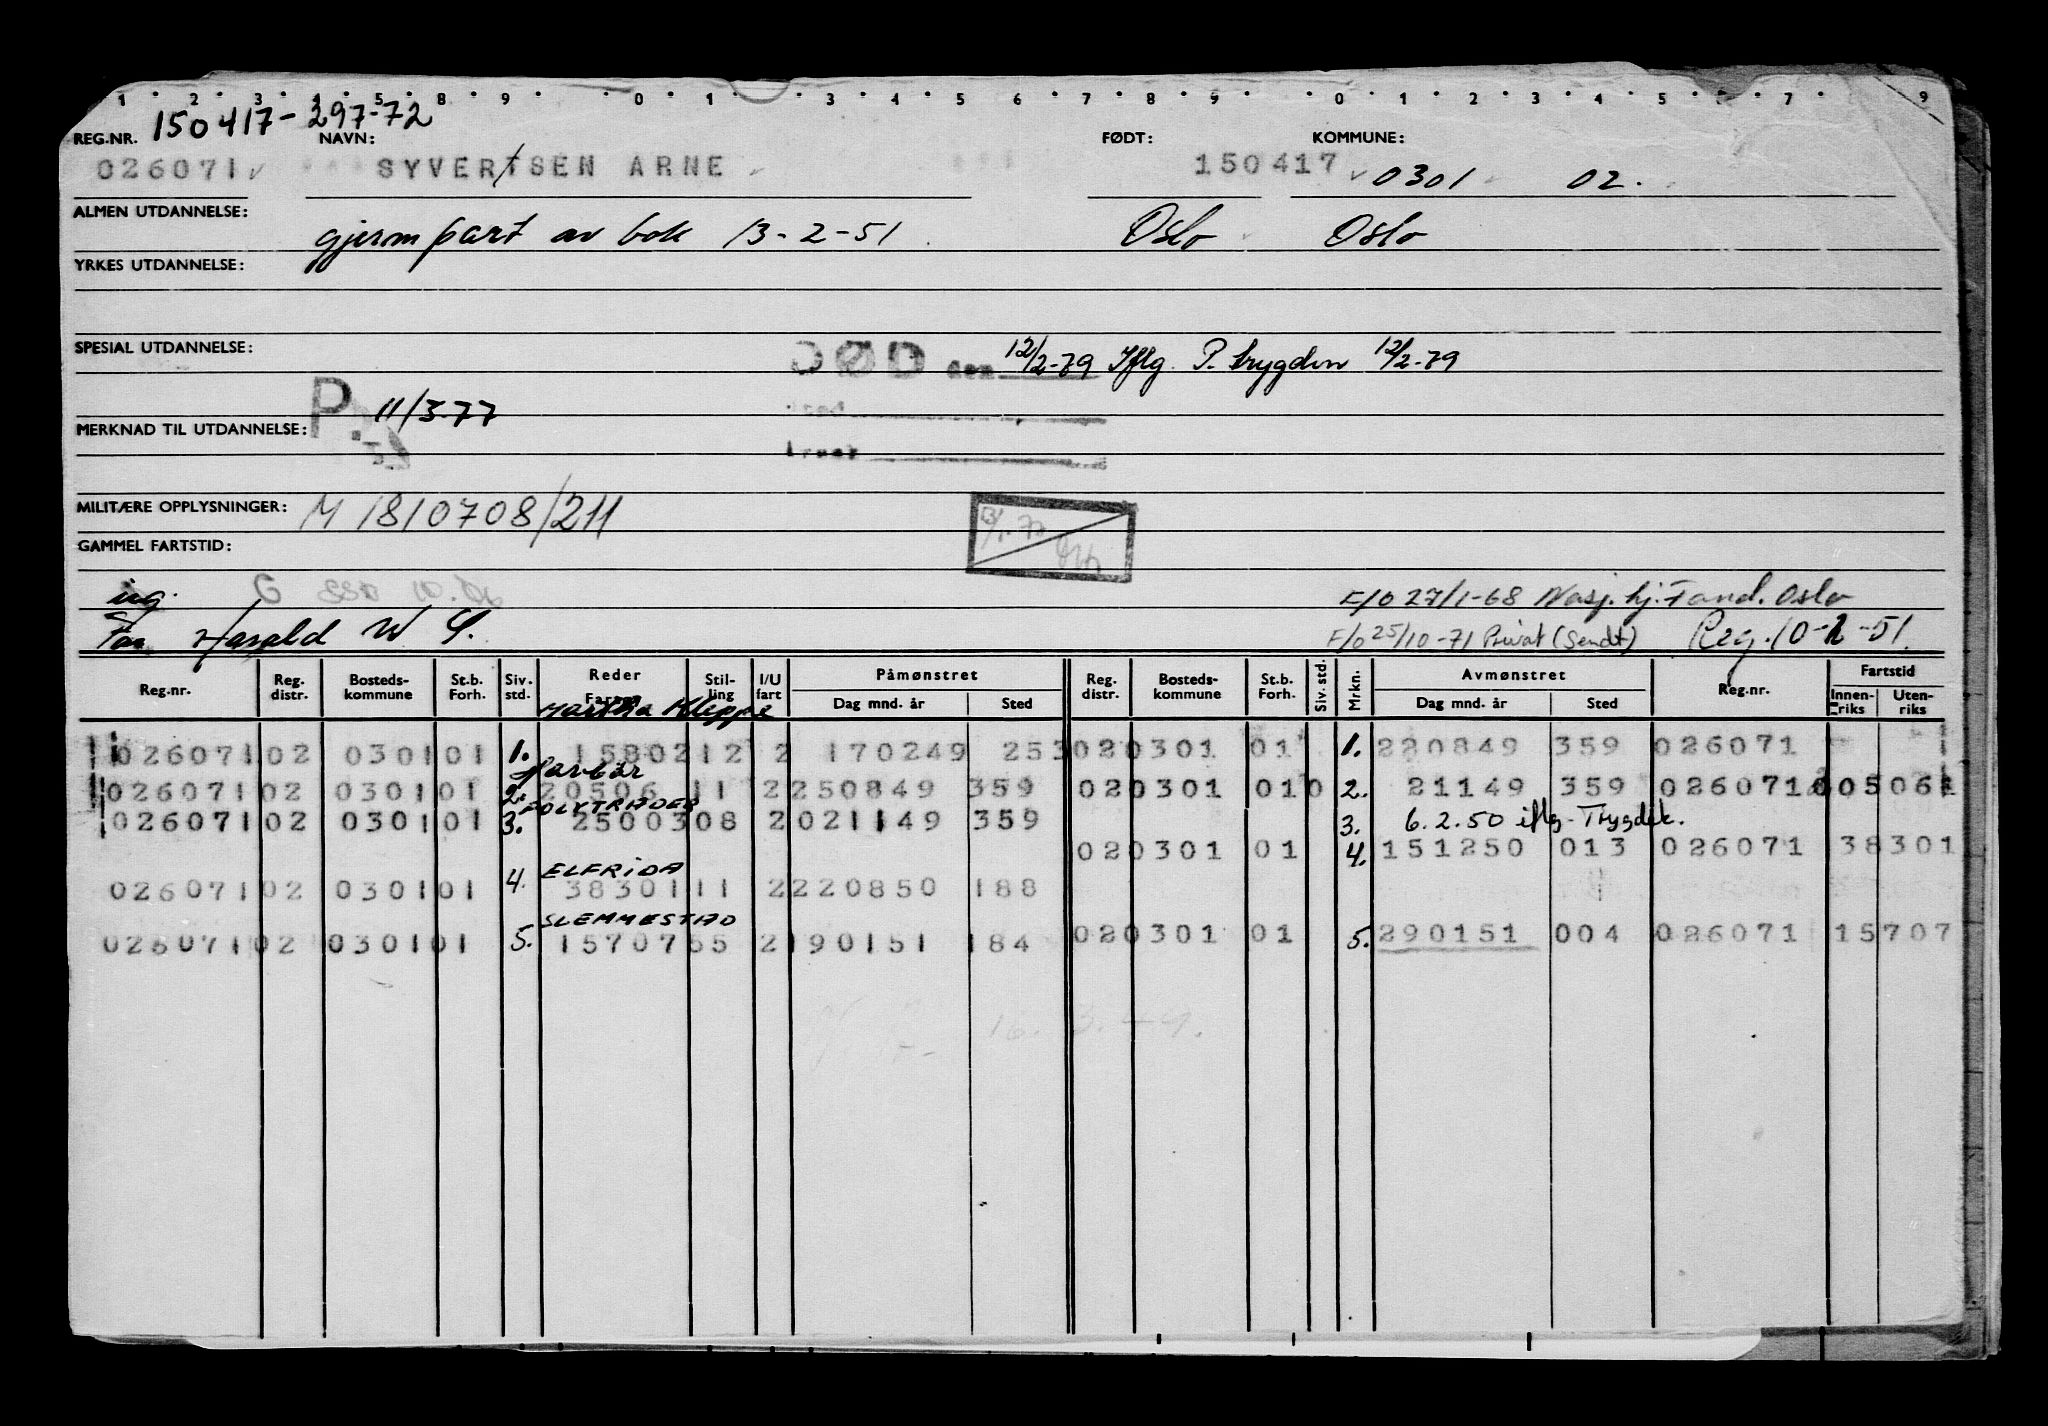 1 2 3 4 5 8 9 0 1 3 4 5 6 7 8 9 0 1 2 3 4 5 6 7 9
REG.NR. 150417-297-72 NAVN: FØDT: KOMMUNE:
026071 SYVERTSEN ARNE 150417 0301 02.
ALMEN UTDANNELSE: gjerm part av bok 13-2-51 Oslo Oslo
YRKES UTDANNELSE:
SPESIAL UTDANNELSE: DØD den 12/2-79 Iflg P. trygden 12/2-79
P. 11/3-77
MERKNAD TIL UTDANNELSE:
Årsak
MILITÆRE OPPLYSNINGER: M 1810708/211
GAMMEL FARTSTID:
ug. F/O 27/1-68 Nasj. hj. Fond. Oslo
Far Harald W S. F/O 25/10-71 Privat (Sendt) Reg. 10-2-51.
Reg.nr. Reg. distr. Bosteds-kommune St.b. Forh. Siv. std. Reder Fartøy Stil-ling I/U fart Påmønstret Dag mnd. år Sted Reg. distr. Bosteds-kommune St.b. Forh. Siv. std. Mrkn. Avmønstret Dag mnd. år Sted Reg.nr. Fartstid Innen-riks Uten-riks
Martha Kleppe
026071 02 0301 01 1. 15802 12 2 170249 253 02 0301 01 1. 220849 359 026071
Havbør
026071 02 0301 01 2. 20506 11 2 250849 359 02 0301 01 0 2. 21149 359 026071
POLYTRADER
026071 02 0301 01 3. 25003 08 2 021149 359 3. 6.2.50 iflg. Trygdek.
02 0301 01 4. 151250 013 026071 38301
ELFRIDA
026071 02 0301 01 4. 38301 11 2 220850 188
SLEMMESTAD
026071 02 0301 01 5. 15707 55 2 190151 184 02 0301 01 5. 290151 004 026071 15707
16. 3. 44.